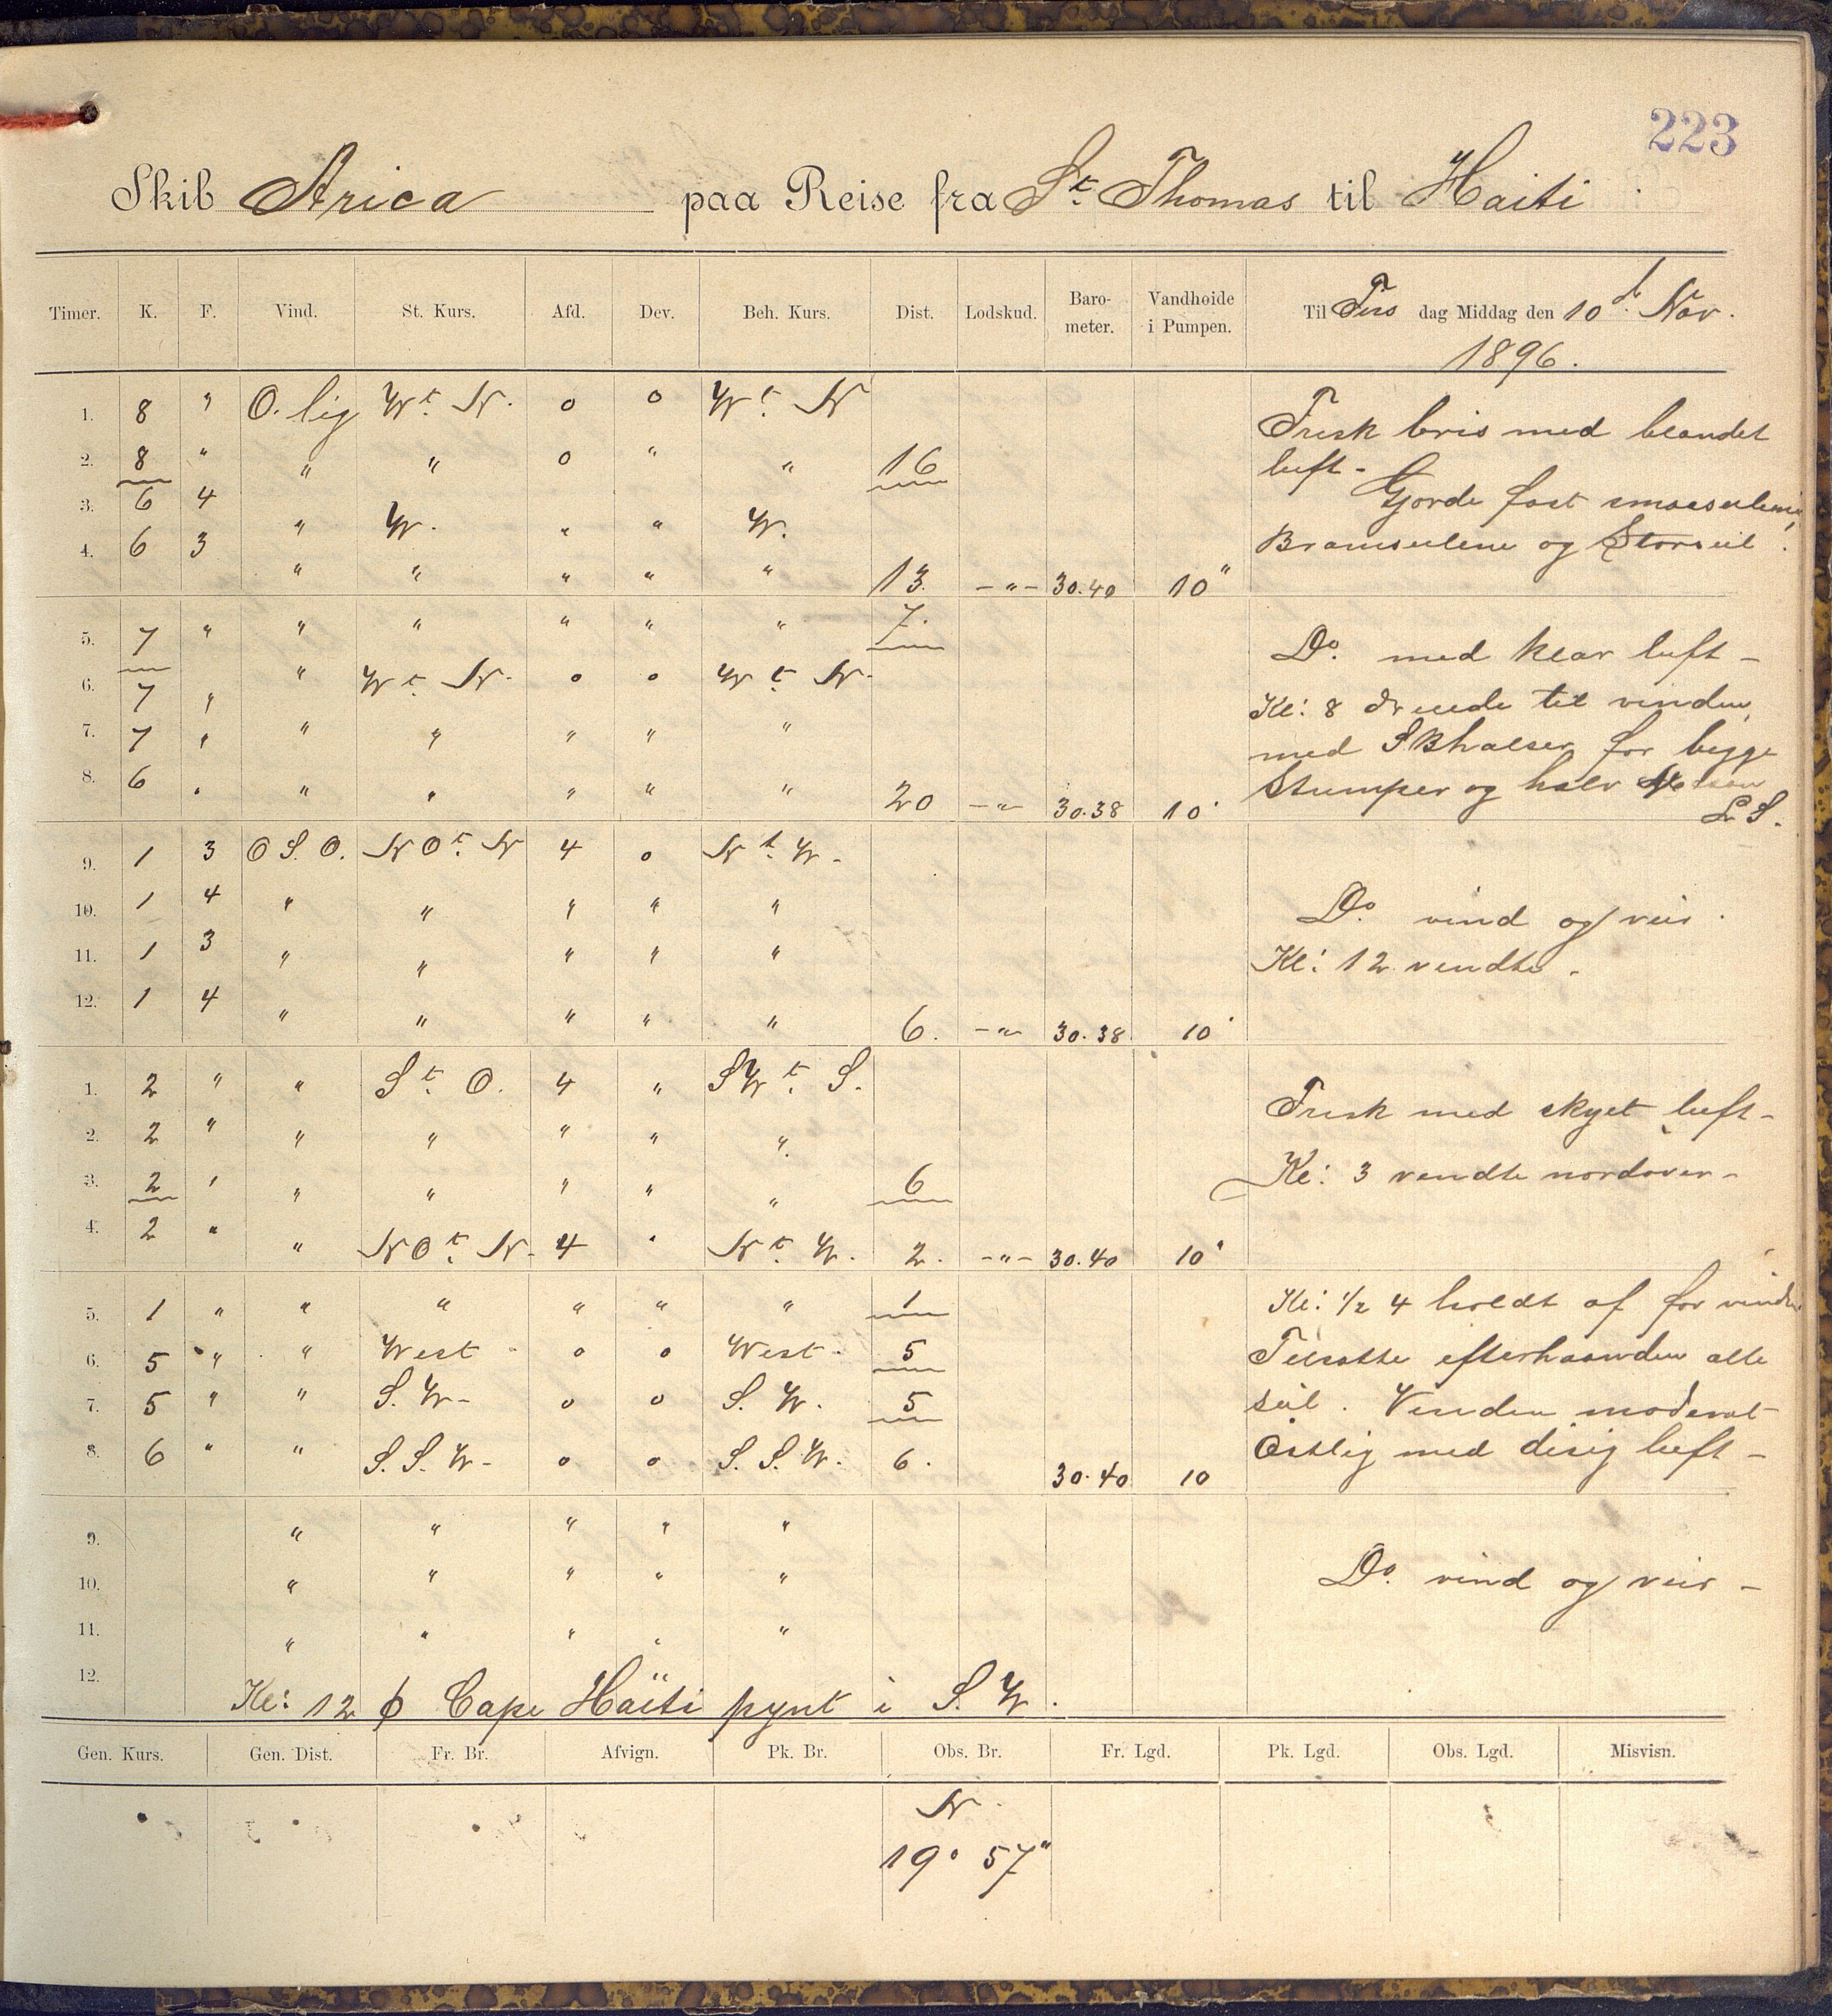 223
Skib Arica paa Reise fra St. Thomas til Haiti
Timer. K. F. Vind. St. Kurs. Afd. Dev. Beh. Kurs. Dist. Lodskud. Baro-meter. Vandhøide i Pumpen. Til Tirs dag Middag den 10d. Nov. 1896.
1. 8 " O. lig Wt. N. 0 0 Wt. N
2. 8 " " " 0 " " 16
3. 6 4 " W. " " W.
4. 6 3 " " " " " 13. -"- 30.40 10"
Frisk bris med blandet
luft -
Gjorde fast smaaseilene,
Bramseilene og Storseil.
5. 7 " " " " " " 7.
6. 7 " " Wt. N. 0 0 Wt. N.
7. 7 " " " " " "
8. 6 " " " " " " 20 -"- 30.38 10"
Do. med klar luft -
Kl: 8 dreiede til vinden,
med SBhalser for begge
Stumper og halv
L S.
9. 1 3 O S. O. N Ot. N 4 0 Nt. W.
10. 1 4 " " " " "
11. 1 3 " " " " "
12. 1 4 " " " " " 6. -"- 30.38 10"
Do. vind og veir.
Kl: 12 vendte.
1. 2 " " St. O. 4 " SWt. S.
2. 2 " " " " " "
3. 2 " " " " " " 6
4. 2 " " N Ot. N. 4 " Nt. W. 2. -"- 30.40 10"
Frisk med skyet luft -
Kl: 3 vendte nordover -
5. 1 " " " " " " 1
6. 5 " " West 0 0 West. 5
7. 5 " " S. W. 0 0 S. W. 5
8. 6 " " S. S. W. 0 0 S. S. W. 6. 30.40 10
Kl: 1/2 4 holdt af for vinden
Tilsatte efterhaanden alle
seil. Vinden moderat
Østlig med disig luft -
9. " " " " "
10. " " " " "
11. " " " " "
12.
Do. vind og veir -
Kl: 12 Cape Haïti pynt i S. W.
Gen. Kurs. Gen. Dist. Fr. Br. Afvign. Pk. Br. Obs. Br. Fr. Lgd. Pk. Lgd. Obs. Lgd. Misvisn.
N.
19° 57"